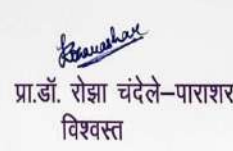 प्रा.डॉ. रोझा चंदेले–पाराशर
विश्वस्त